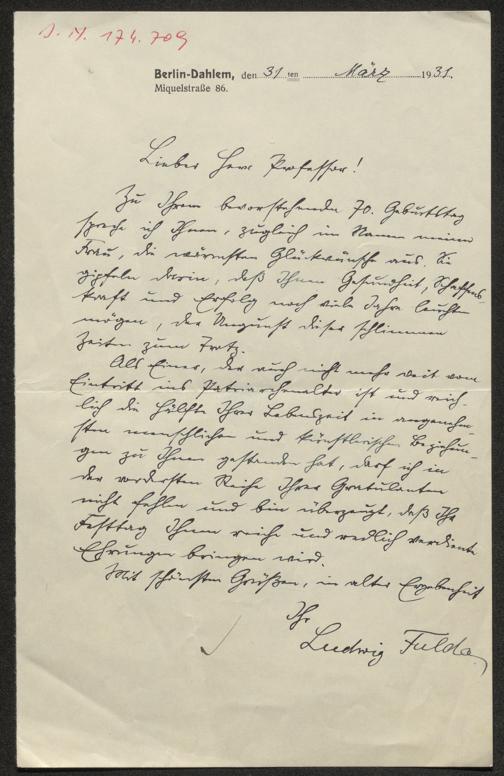 J. N. 174.709
Berlin-Dahlem, den 31 ten März 1931.
Miquelstraße 86.
Lieber Herr Professor!
Zu Ihrem bevorstehenden 70. Geburtstag
spreche ich Ihnen, zugleich im Namen meiner
Frau, die wärmsten Glückwünsche aus. Sie
gipfeln darin, daß Ihnen Gesundheit, Schaffens-
kraft und Erfolg noch viele Jahre leuchten
mögen, der Ungunst dieser schlimmen
Zeiten zum Trotz.
Als Einer, der auch nicht mehr weit vom
Eintritt ins Patriarchenalter ist und reich-
lich die Hälfte Ihrer Lebenszeit in angenehm-
sten menschlichen und künstlerischen Beziehun-
gen zu Ihnen gestanden hat, darf ich in
der vordersten Reihe Ihrer Gratulanten
nicht fehlen und bin überzeugt, daß Ihr
Festtag Ihnen reiche und redlich verdiente
Ehrungen bringen wird.
Mit schönsten Grüßen, in alter Ergebenheit
Ihr
Ludwig Fulda